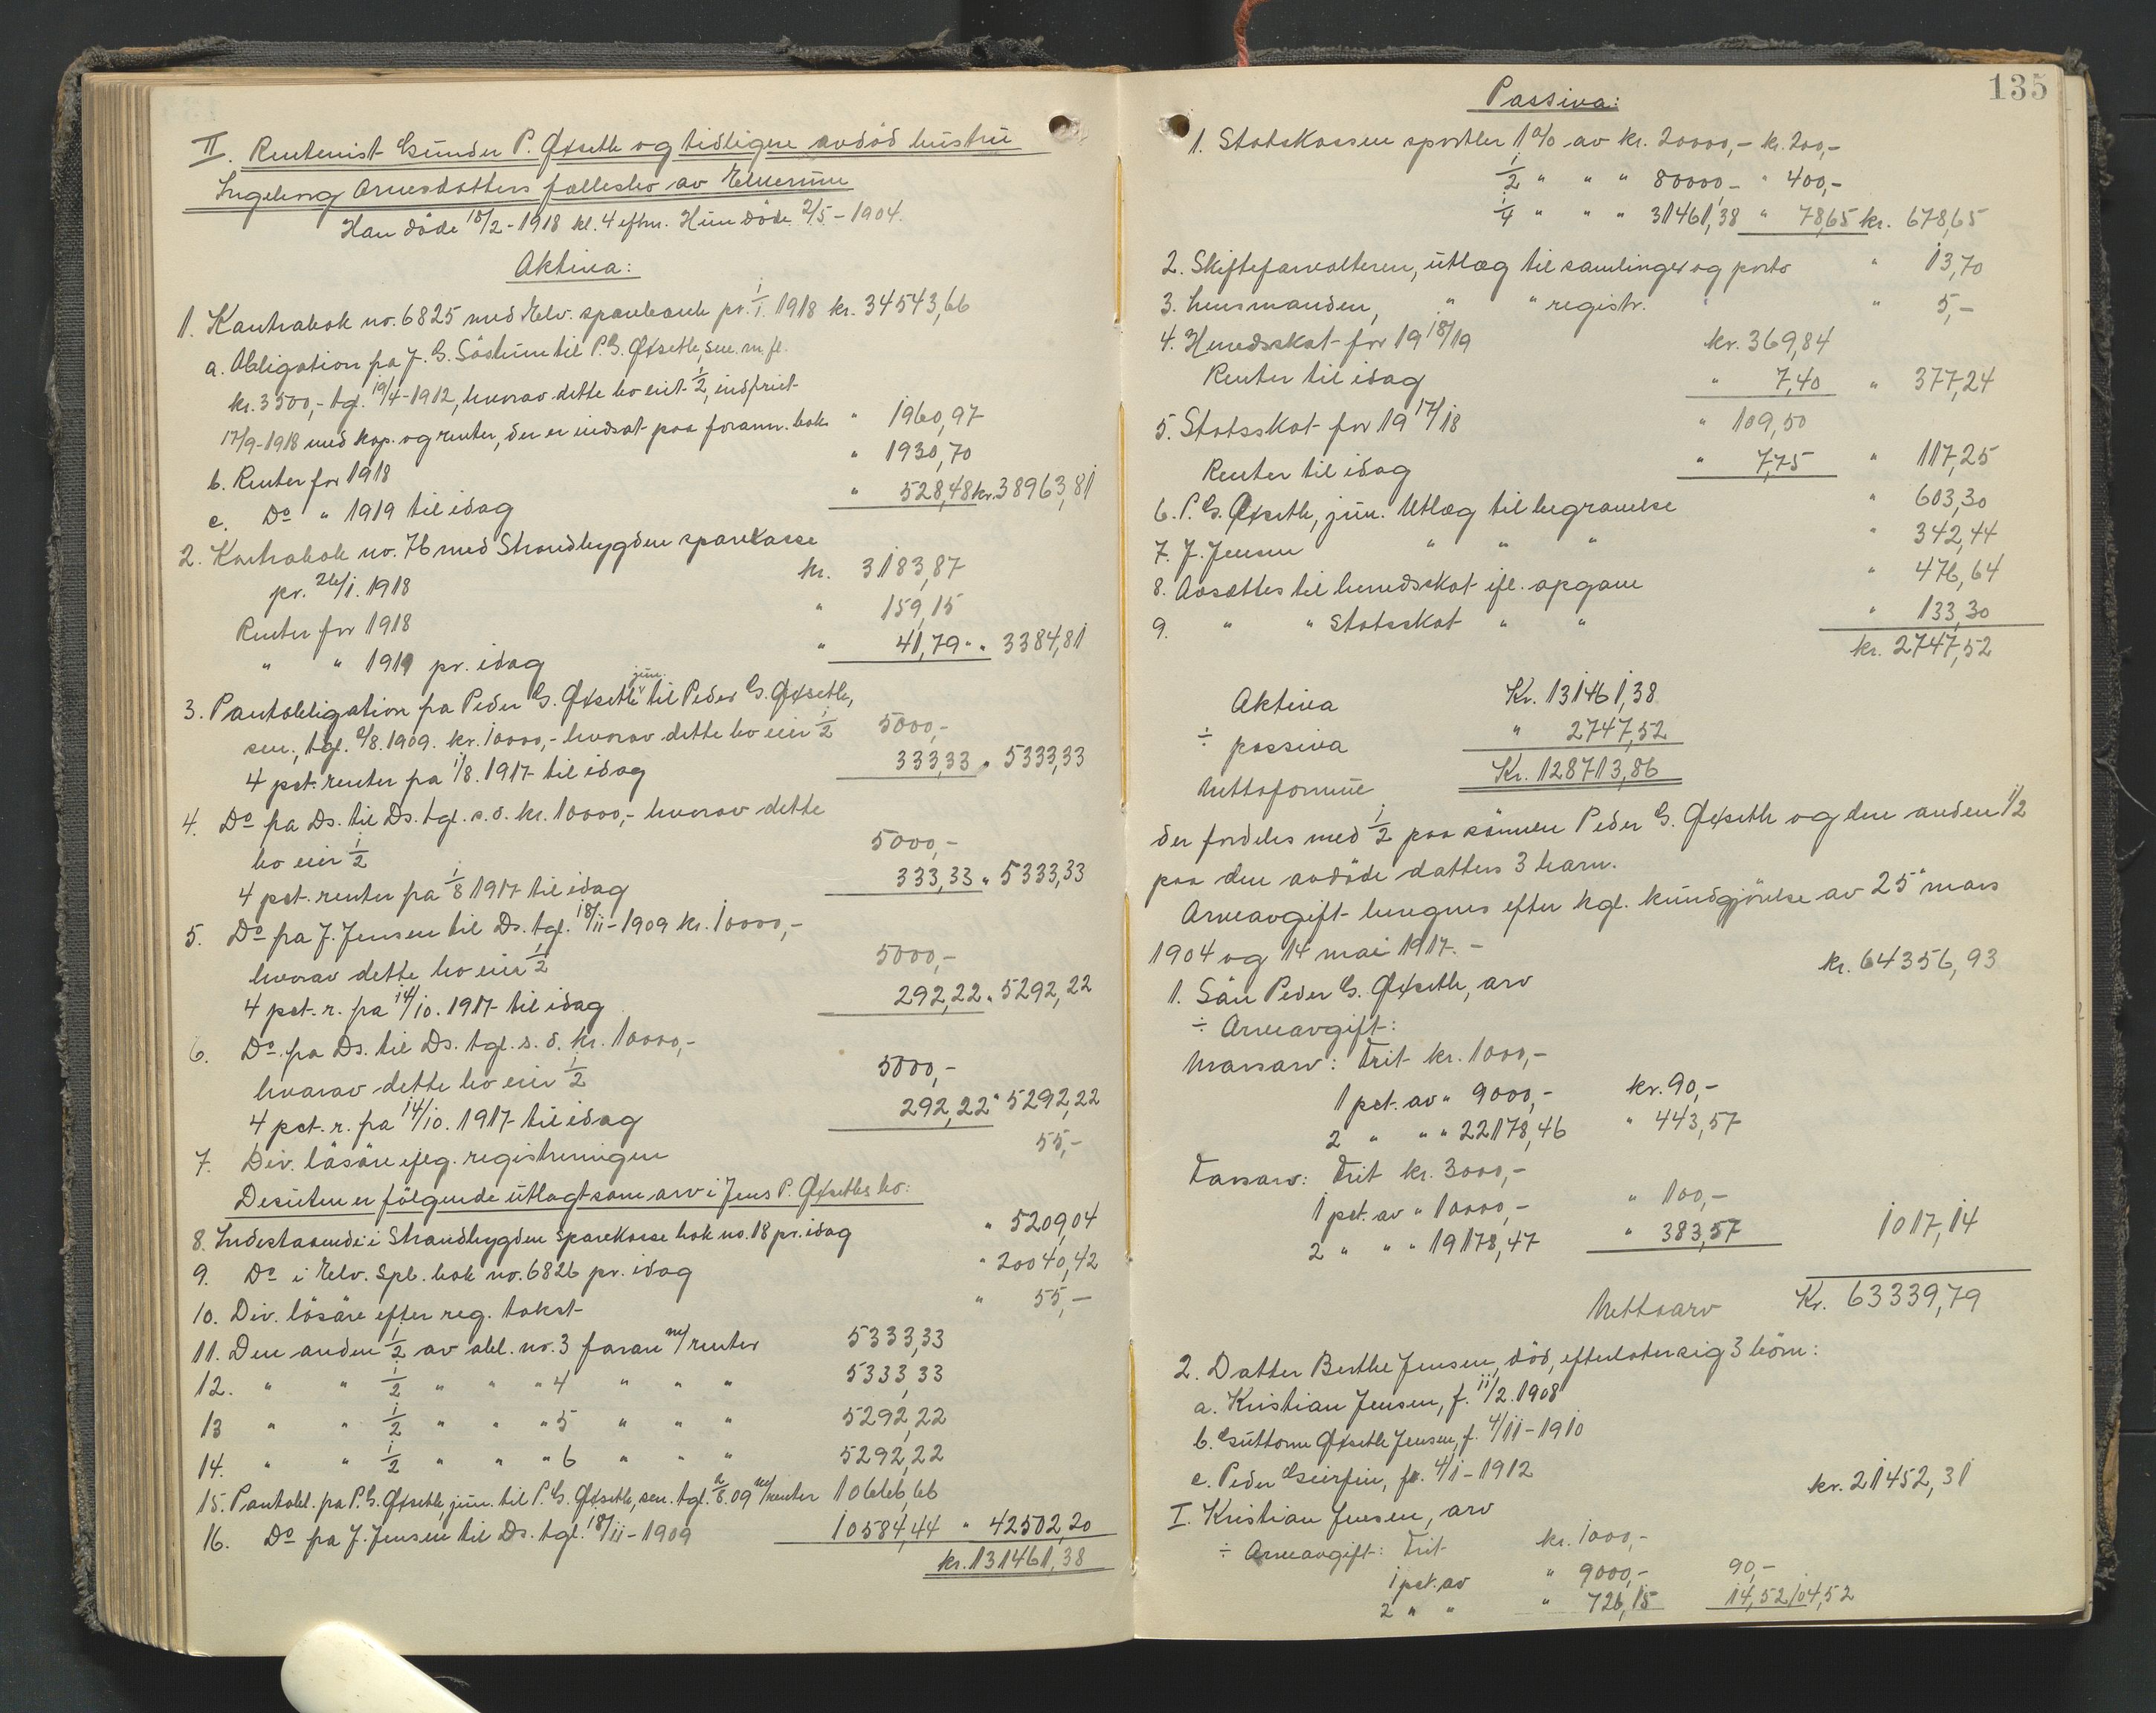 II. Rentenist Gunder P. Øxseth og tidligere avdød hustru
Ingeborg Arnesdatters fællesbo av Elverum
Han døde 18/2-1918 kl. 4 eftm. Hun døde 2/5-1904.
Aktiva:
1. Kontrabok no. 6825 med Elv. sparebank pr. 1/1. 1918 kr. 34543,66
a. Obligation fra J. G. til P. G. Øxseth, sen. m. fl.
kr. 3500,- tgl. 19/4-1912, hvorav dette bo eiet 1/2, indfriet
17/9-1918 med kap. og renter, der er indsat paa forann. bok " 1960,97
b. Renter for 1918 " 1930,70
c. Do " 1919 til idag " 528,48 kr. 38963,81
2. Kontrabok no. 76 med Strandbygden sparekasse
pr. 26/1. 1918 kr. 3183,87
Renter for 1918 " 159,15
" " 1919 pr. idag " 41,79 " " 3384,81
3. Pantobligation fra Peder G. Øxseth jun. til Peder G. Øxseth,
sen., tgl. 2/8. 1909. kr. 10000,- hvorav dette bo eier 1/2 5000,-
4 pct. renter fra 1/8. 1917 til idag 333,33 " 5333,33
4. Do fra Ds. til Ds. tgl. s. d. kr. 10000,- hvorav dette
bo eier 1/2 5000,-
4 pct. renter fra 1/8 1917 til idag 333,33 " 5333,33
5. Do fra J. Jensen til Ds. tgl. 18/11-1909 kr. 10000,-
hvorav dette bo eier 1/2 5000,-
4 pct. r. fra 14/10. 1917 til idag 292,22 " 5292,22
6. Do fra Ds. til Ds. tgl. s. d. kr. 10000,-
hvorav dette bo eier 1/2 5000,-
4 pct. r. fra 14/10. 1917 til idag 292,22 " 5292,22
7. Div. løsøre efter registreringen 55,-
Desuten er følgende utlagt som arv i Jens P. Øxseths bo:
8. Indestaaende i Strandbygden Sparekasse bok no. 18 pr. idag " 5209,04
9. Do i Elv. Spb. bok no. 6826 pr. idag " 20040,42
10. Div. løsøre efter reg. takst " 55,-
11. Den anden 1/2 av obl. no. 3 foran m/ renter 5333,33
12. " " 1/2 " " " 4 " " " 5333,33
13 " " 1/2 " " " 5 " " " 5292,22
14. " " 1/2 " " " 6 " " " 5292,22
15. Pantobl. fra P. G. Øxseth, jun. til P. G. Øxseth, sen. tgl. 2/8. 09 m/ renter 10666,66
16. Do fra J. Jensen til Ds. tgl. 18/11-1909 10584,44 " 42502,20
kr. 131461,38
135
Passiva:
1. Statskassen sportler 1 o/o av kr. 20000,- kr. 200,-
1/2 " " " 80000,- " 400,-
1/4 " " " 31461,38 " 78,65 kr. 678,65
2. Skifteforvalteren, utlæg til samlinger og porto " 13,70
3. Lensmanden, " " registr. " 5,-
4. Herredsskat for 1918/19 kr. 369,84
Renter til idag " 7,40 " 377,24
5. Statsskat for 1917/18 " 109,50
Renter til idag " 7,75 " 117,25
6. P. G. Øxseth, jun. Utlæg til begravelse " 603,30
7. J. Jensen " " " " 342,44
8. Avsættes til herredsskat ifl. opgave " 476,64
9. " " Statsskat " " " 133,30
kr. 2747,52
Aktiva Kr. 131461,38
÷ passiva " 2747,52
Nettoformue Kr. 128713,86
der fordeles med 1/2 paa sønnen Peder G. Øxseth og den anden 1/2
paa den avdøde datters 3 barn.
Arveavgift beregnes efter kgl. kundgjørelse av 25 mars
1904 og 14 mai 1917. -
1. Søn Peder G. Øxseth, arv kr. 64356,93
÷ Arveavgift:
Morsarv: Frit kr. 1000,-
1 pct. av " 9000,- kr. 90,-
2 " " " 22178,46 " 443,57
Farsarv: Frit kr. 3000,-
1 pct. av " 10000,- " 100,-
2 " " " 19178,47 " 383,57 1017,14
Nettoarv Kr. 63339,79
2. Datter Berthe Jensen, død, efterlater sig 3 børn:
a. Kristian Jensen, f. 11/2. 1908
b. Guttorm Øxseth Jensen, f. 4/11-1910
c. Peder Geirfin, f. 4/1-1912
I. Kristian Jensen, arv kr. 21452,31
÷ Arveavgift: Frit kr. 1000,-
1 pct. av " 9000,- 90,-
2 " " " 726,15 14,52 104,52